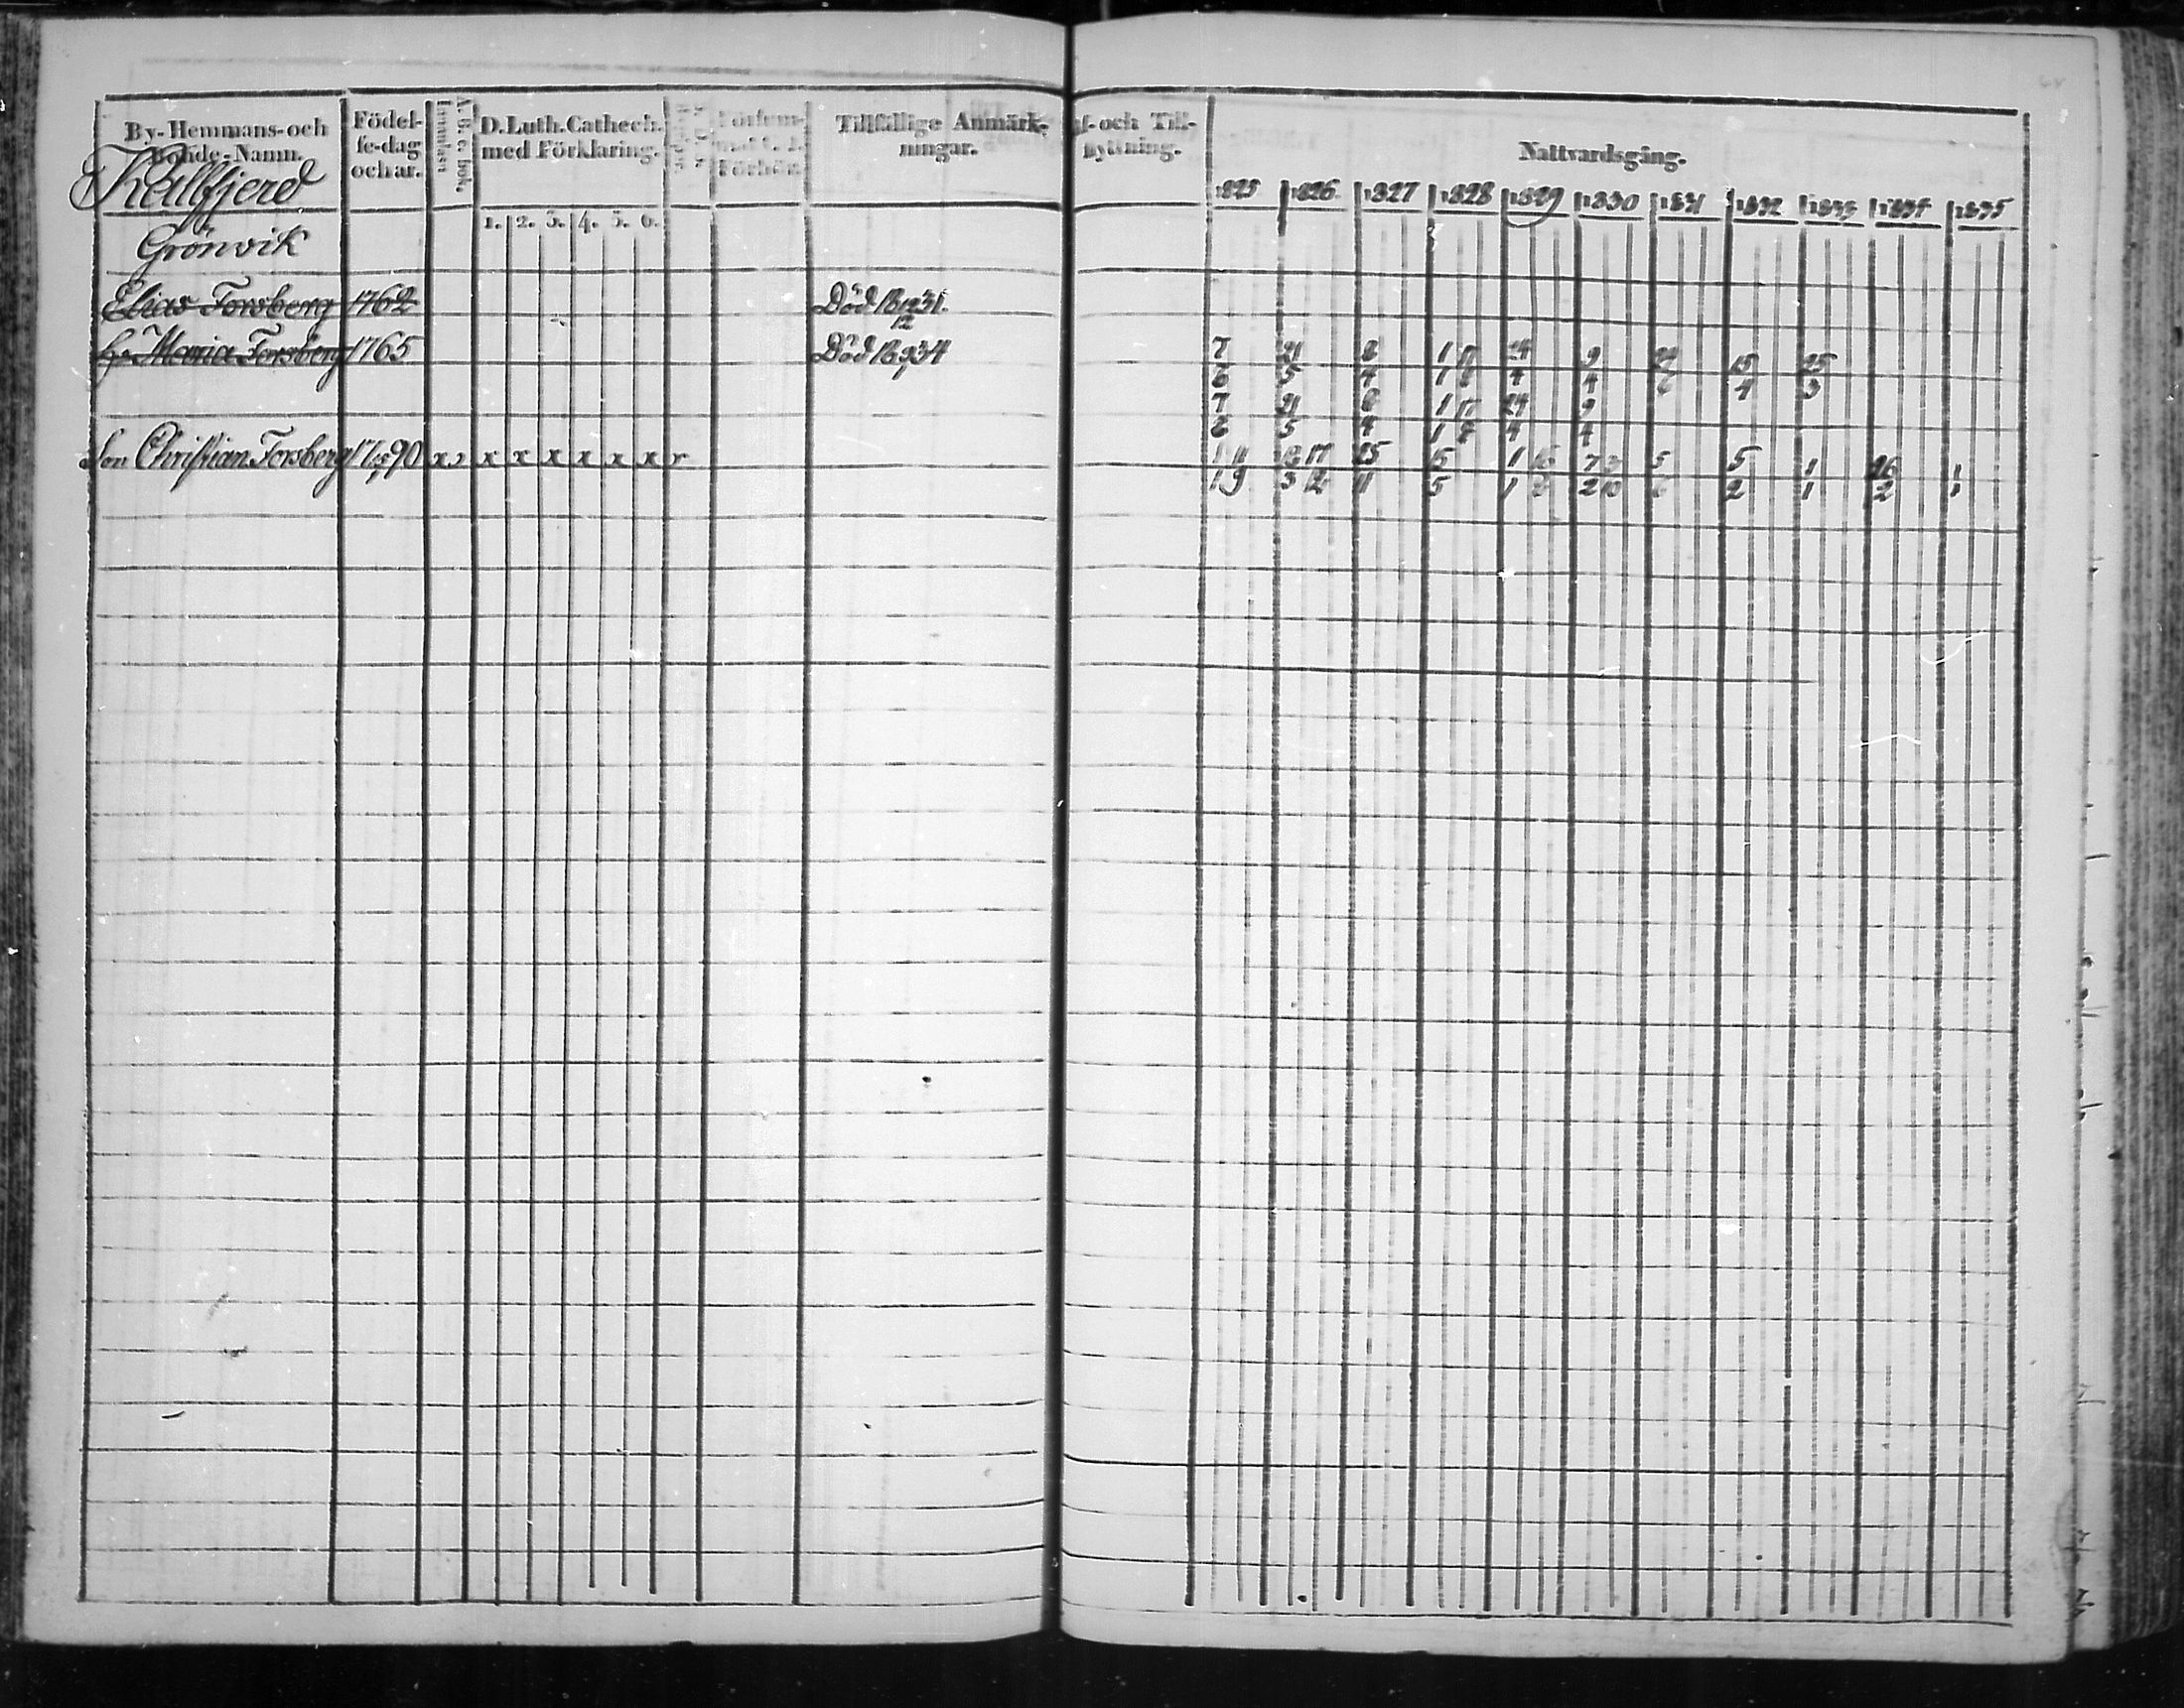 By-Hemmans-och
Bonde-Namn.
Födel-
se-dag
och ar.
Innanläsn
A. B. c. bok.
D. Luth. Cathech.
med Förklaring.
1. 2. 3. 4. 5. 6.
Tillfällige Anmärk-
ningar.
af- och Till-
flyttning.
Nattvardsgång.
1825 1826 1827 1828 1829 1830 1831 1832 1833 1834 1835
Källfjerd
Grönvik
Elias Forsberg 1762 Död
Maria Forsberg 1765 Död
7 21 1 17 24 9 15 25
6 5 4 1 4 4 6 4 3
7 21 1 17 24 9
6 5 4 1 4 4
Son Christian Forsberg 90 x x x x x x x
1 11 17 25 15 1 16 7 5 5 1 26 1
1 9 3 12 11 5 1 2 10 6 2 1 2 1